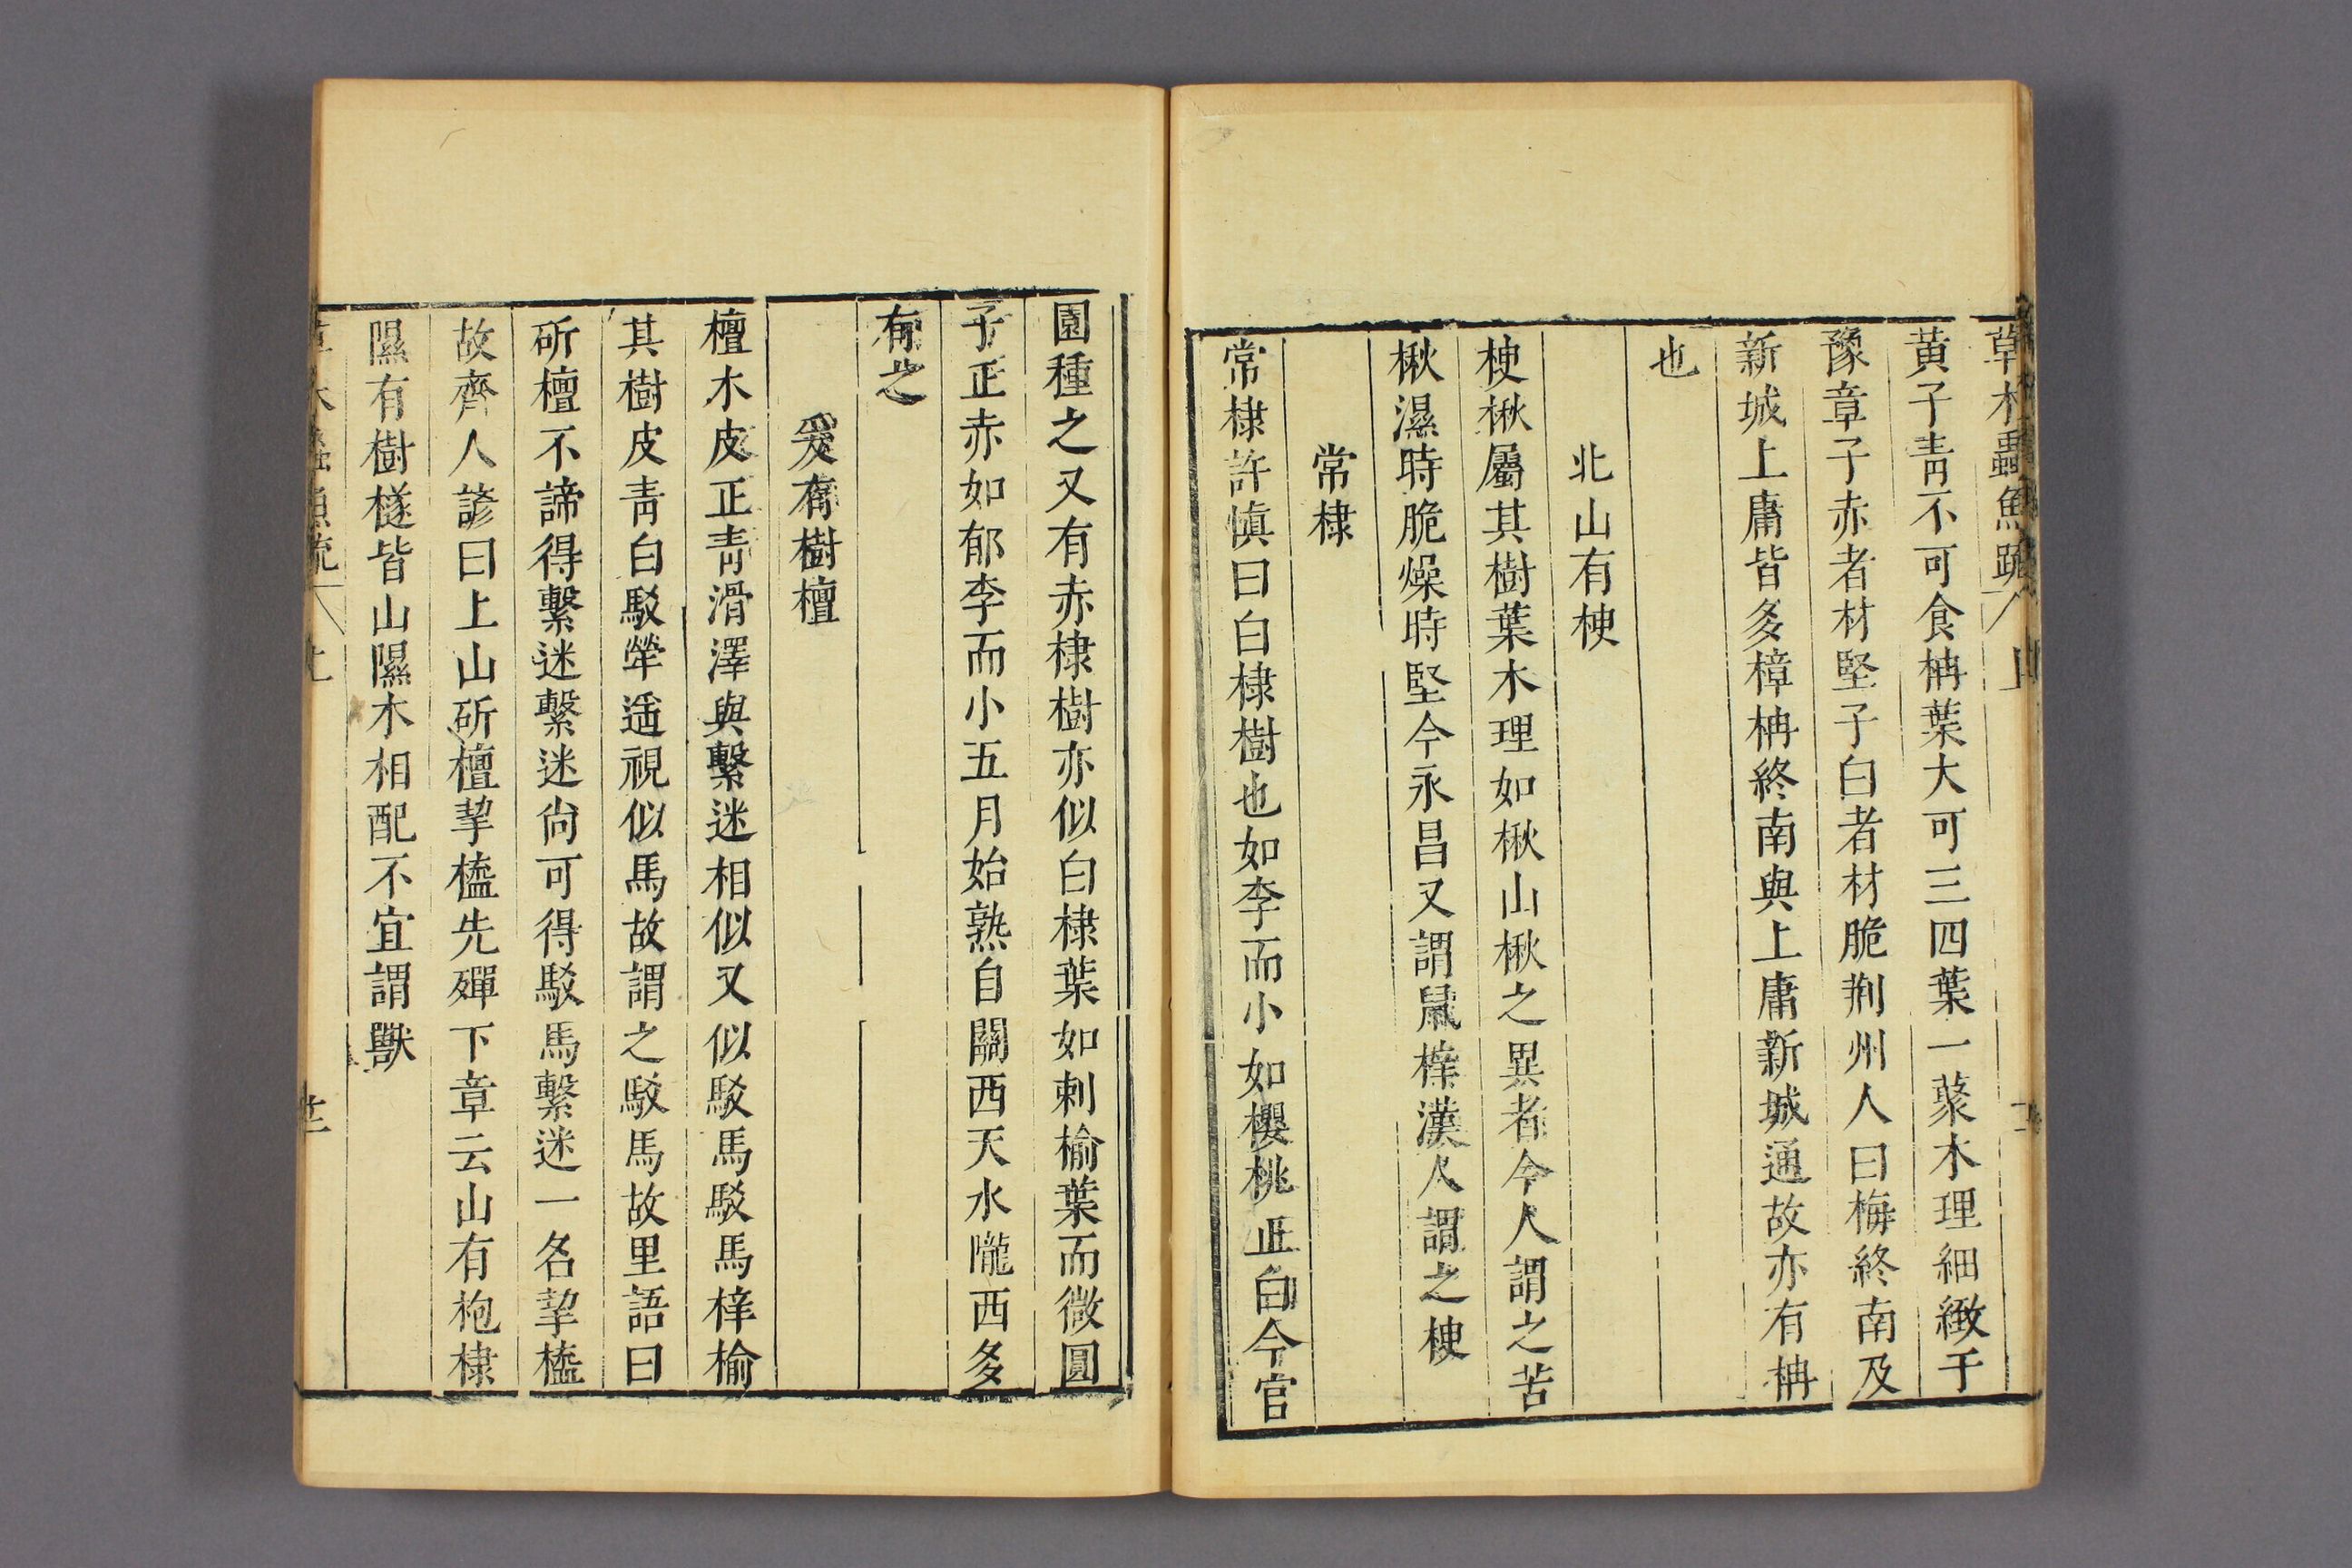 草木蟲魚疏 上
黃子靑不可食柟葉大可三四葉一藂木理細緻于
豫章子赤者材堅子白者材脆荆州人曰梅終南及
新城上庸皆多樟柟終南與上庸新城通故亦有柟
也
北山有楰
楰楸屬其樹葉木理如楸山楸之異者今人謂之苦
楸濕時脆燥時堅今永昌又謂鼠梓漢人謂之楰
常棣
常棣許愼曰白棣樹也如李而小如櫻桃正白今官
園種之又有赤棣樹亦似白棣葉如刺榆葉而微圓
子正赤如郁李而小五月始熟自關西天水隴西多
有之
爰有樹檀
檀木皮正靑滑澤與繫迷相似又似駁馬駁馬梓榆
其樹皮靑白駁犖遥視似馬故謂之駁馬故里語曰
斫檀不諦得繫迷繫迷尙可得駁馬繫迷一名挈橀
故齊人諺曰上山斫檀挈橀先殫下章云山有枹棣
隰有樹檖皆山隰木相配不宜謂獸
草木蟲魚疏 上 廿二